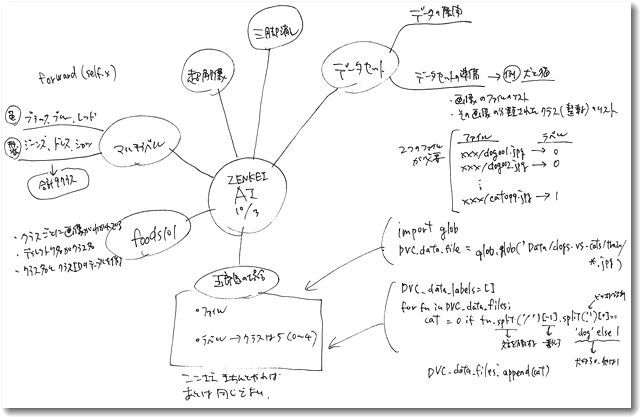 forward(self.x)
三脚消し
データの
超解像
データセット
データセットの準備 → 例 犬と猫
・画像のファイルのリスト
・その画像の分類されたクラス(整数)のリスト
色 ブラック、ブルー、レッド
ジーンズ、ドレス、シャツ
マルチラベル
合計 クラス
2つのファイルが必要
ファイル ラベル
xxx/dog001.jpg → 0
xxx/dog002.jpg → 0
xxx/cat099.jpg → 1
ZENKEI
AI
10/3
foods101
・クラスごとに画像が
・ディレクトリ名がクラス名
・クラス名とクラスIDの
import glob
DVC_data_file = glob.glob('Data/dogs-vs-cats/train/
*.jpg')
・ファイル
・ラベル → クラスは5 (0~4)
ここまで きちんとやれば
あとは 同じです。
DVC_data_labels=[]
for fn in DVC_data_files:
cat = 0 if fn.split('/')[-1].split('.')[0]==
'dog' else 1
DVC_data_files.append(cat)